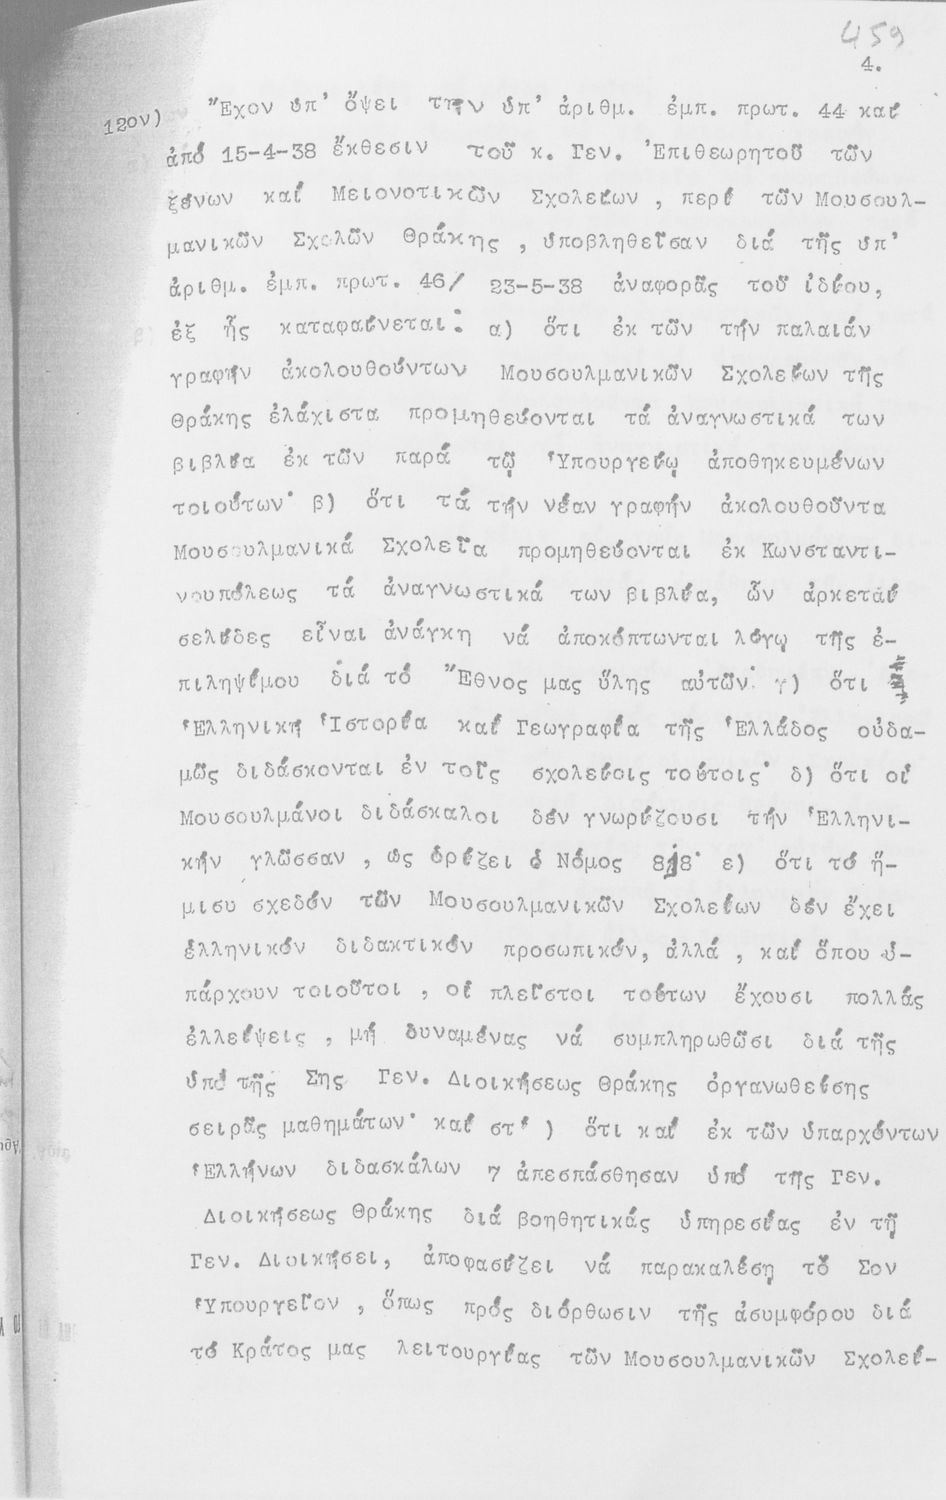 459
4.
12ον) Ἔχον ὑπ' ὄψει τὴν ὑπ' ἀριθμ. ἐμπ. πρωτ. 44 καί
ἀπό 15-4-38 ἔκθεσιν τοῦ κ. Γεν. Ἐπιθεωρητοῦ τῶν
ξένων καί Μειονοτικῶν Σχολείων , περί τῶν Μουσουλ-
μανικῶν Σχολῶν Θράκης , ὑποβληθεῖσαν διά τῆς ὑπ'
ἀριθμ. ἐμπ. πρωτ. 46/ 23-5-38 ἀναφορᾶς τοῦ ἰδίου,
ἐξ ἧς καταφαίνεται: α) ὅτι ἐκ τῶν τήν παλαιάν
γραφήν ἀκολουθούντων Μουσουλμανικῶν Σχολείων τῆς
Θράκης ἐλάχιστα προμηθεύονται τά ἀναγνωστικά των
βιβλία ἐκ τῶν παρά τῷ Ὑπουργείῳ ἀποθηκευμένων
τοιούτων· β) ὅτι τά τήν νέαν γραφήν ἀκολουθοῦντα
Μουσουλμανικά Σχολεῖα προμηθεύονται ἐκ Κωνσταντι-
νουπόλεως τά ἀναγνωστικά των βιβλία, ὧν ἀρκεταί
σελίδες εἶναι ἀνάγκη νά ἀποκόπτωνται λόγῳ τῆς ἐ-
πιληψίμου διά τό Ἔθνος μας ὕλης αὐτῶν· γ) ὅτι
Ἑλληνική Ἱστορία καί Γεωγραφία τῆς Ἑλλάδος οὐδα-
μῶς διδάσκονται ἐν τοῖς σχολείοις τούτοις· δ) ὅτι οἱ
Μουσουλμάνοι διδάσκαλοι δέν γνωρίζουσι τήν Ἑλληνι-
κήν γλῶσσαν , ὡς ὁρίζει ὁ Νόμος 818· ε) ὅτι τό ἥ-
μισυ σχεδόν τῶν Μουσουλμανικῶν Σχολείων δέν ἔχει
ἑλληνικόν διδακτικόν προσωπικόν, ἀλλά , καί ὅπου ὑ-
πάρχουν τοιοῦτοι , οἱ πλεῖστοι τούτων ἔχουσι πολλάς
ἐλλείψεις , μή δυναμένας νά συμπληρωθῶσι διά τῆς
ὑπό τῆς Σης Γεν. Διοικήσεως Θράκης ὀργανωθείσης
σειρᾶς μαθημάτων· καί στ' ) ὅτι καί ἐκ τῶν ὑπαρχόντων
Ἑλλήνων διδασκάλων 7 ἀπεσπάσθησαν ὑπό τῆς Γεν.
Διοικήσεως Θράκης διά βοηθητικάς ὑπηρεσίας ἐν τῇ
Γεν. Διοικήσει, ἀποφασίζει νά παρακαλέσῃ τό Σον
Ὑπουργεῖον , ὅπως πρός διόρθωσιν τῆς ἀσυμφόρου διά
τό Κράτος μας λειτουργίας τῶν Μουσουλμανικῶν Σχολεί-